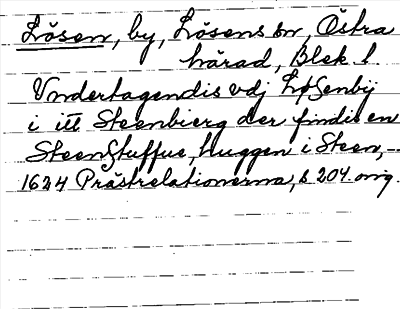 Lösen, by, Lösens sn, Östra
härad, Blek l.
Vndertagendis vdj Løsenbÿ
i itt Steenbierg der findis en
SteenStuffue, huggen i Steen, -
1624 Prästrelationerna, s 204 orig.